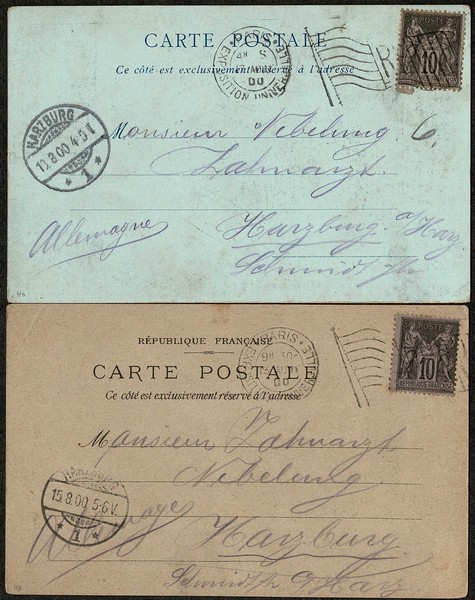 CARTE POSTALE
Ce côté est exclusivement réservé à l'adresse
PARIS
EXPOSITION UNIVERSELLE
00
R
POSTE
10
HARZBURG
13.8.00 4-5 N
* 1 *
Monsieur Nebelung 6.
Zahnarzt.
Harzburg a/Harz
Allemagne
Schmidt
RÉPUBLIQUE FRANÇAISE
CARTE POSTALE
Ce côté est exclusivement réservé à l'adresse
PARIS
00
POSTE
10
RÉPUBLIQUE FRANÇAISE
Monsieur Zahnarzt
Nebelung
HARZBURG
15.8.00 5-6 V.
* 1 *
Allemagne
Harzburg
Harz